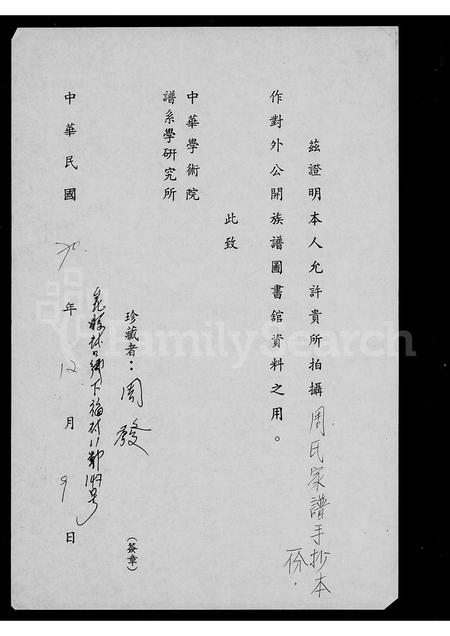 茲證明本人允許貴所拍攝周氏家譜手抄本
一份.
作對外公開族譜圖書館資料之用。
此致
中華學術院
譜系學研究所
珍藏者：周發
(簽章)
林口鄉下福村11鄰149号
中華民國70年12月9日
FamilySearch